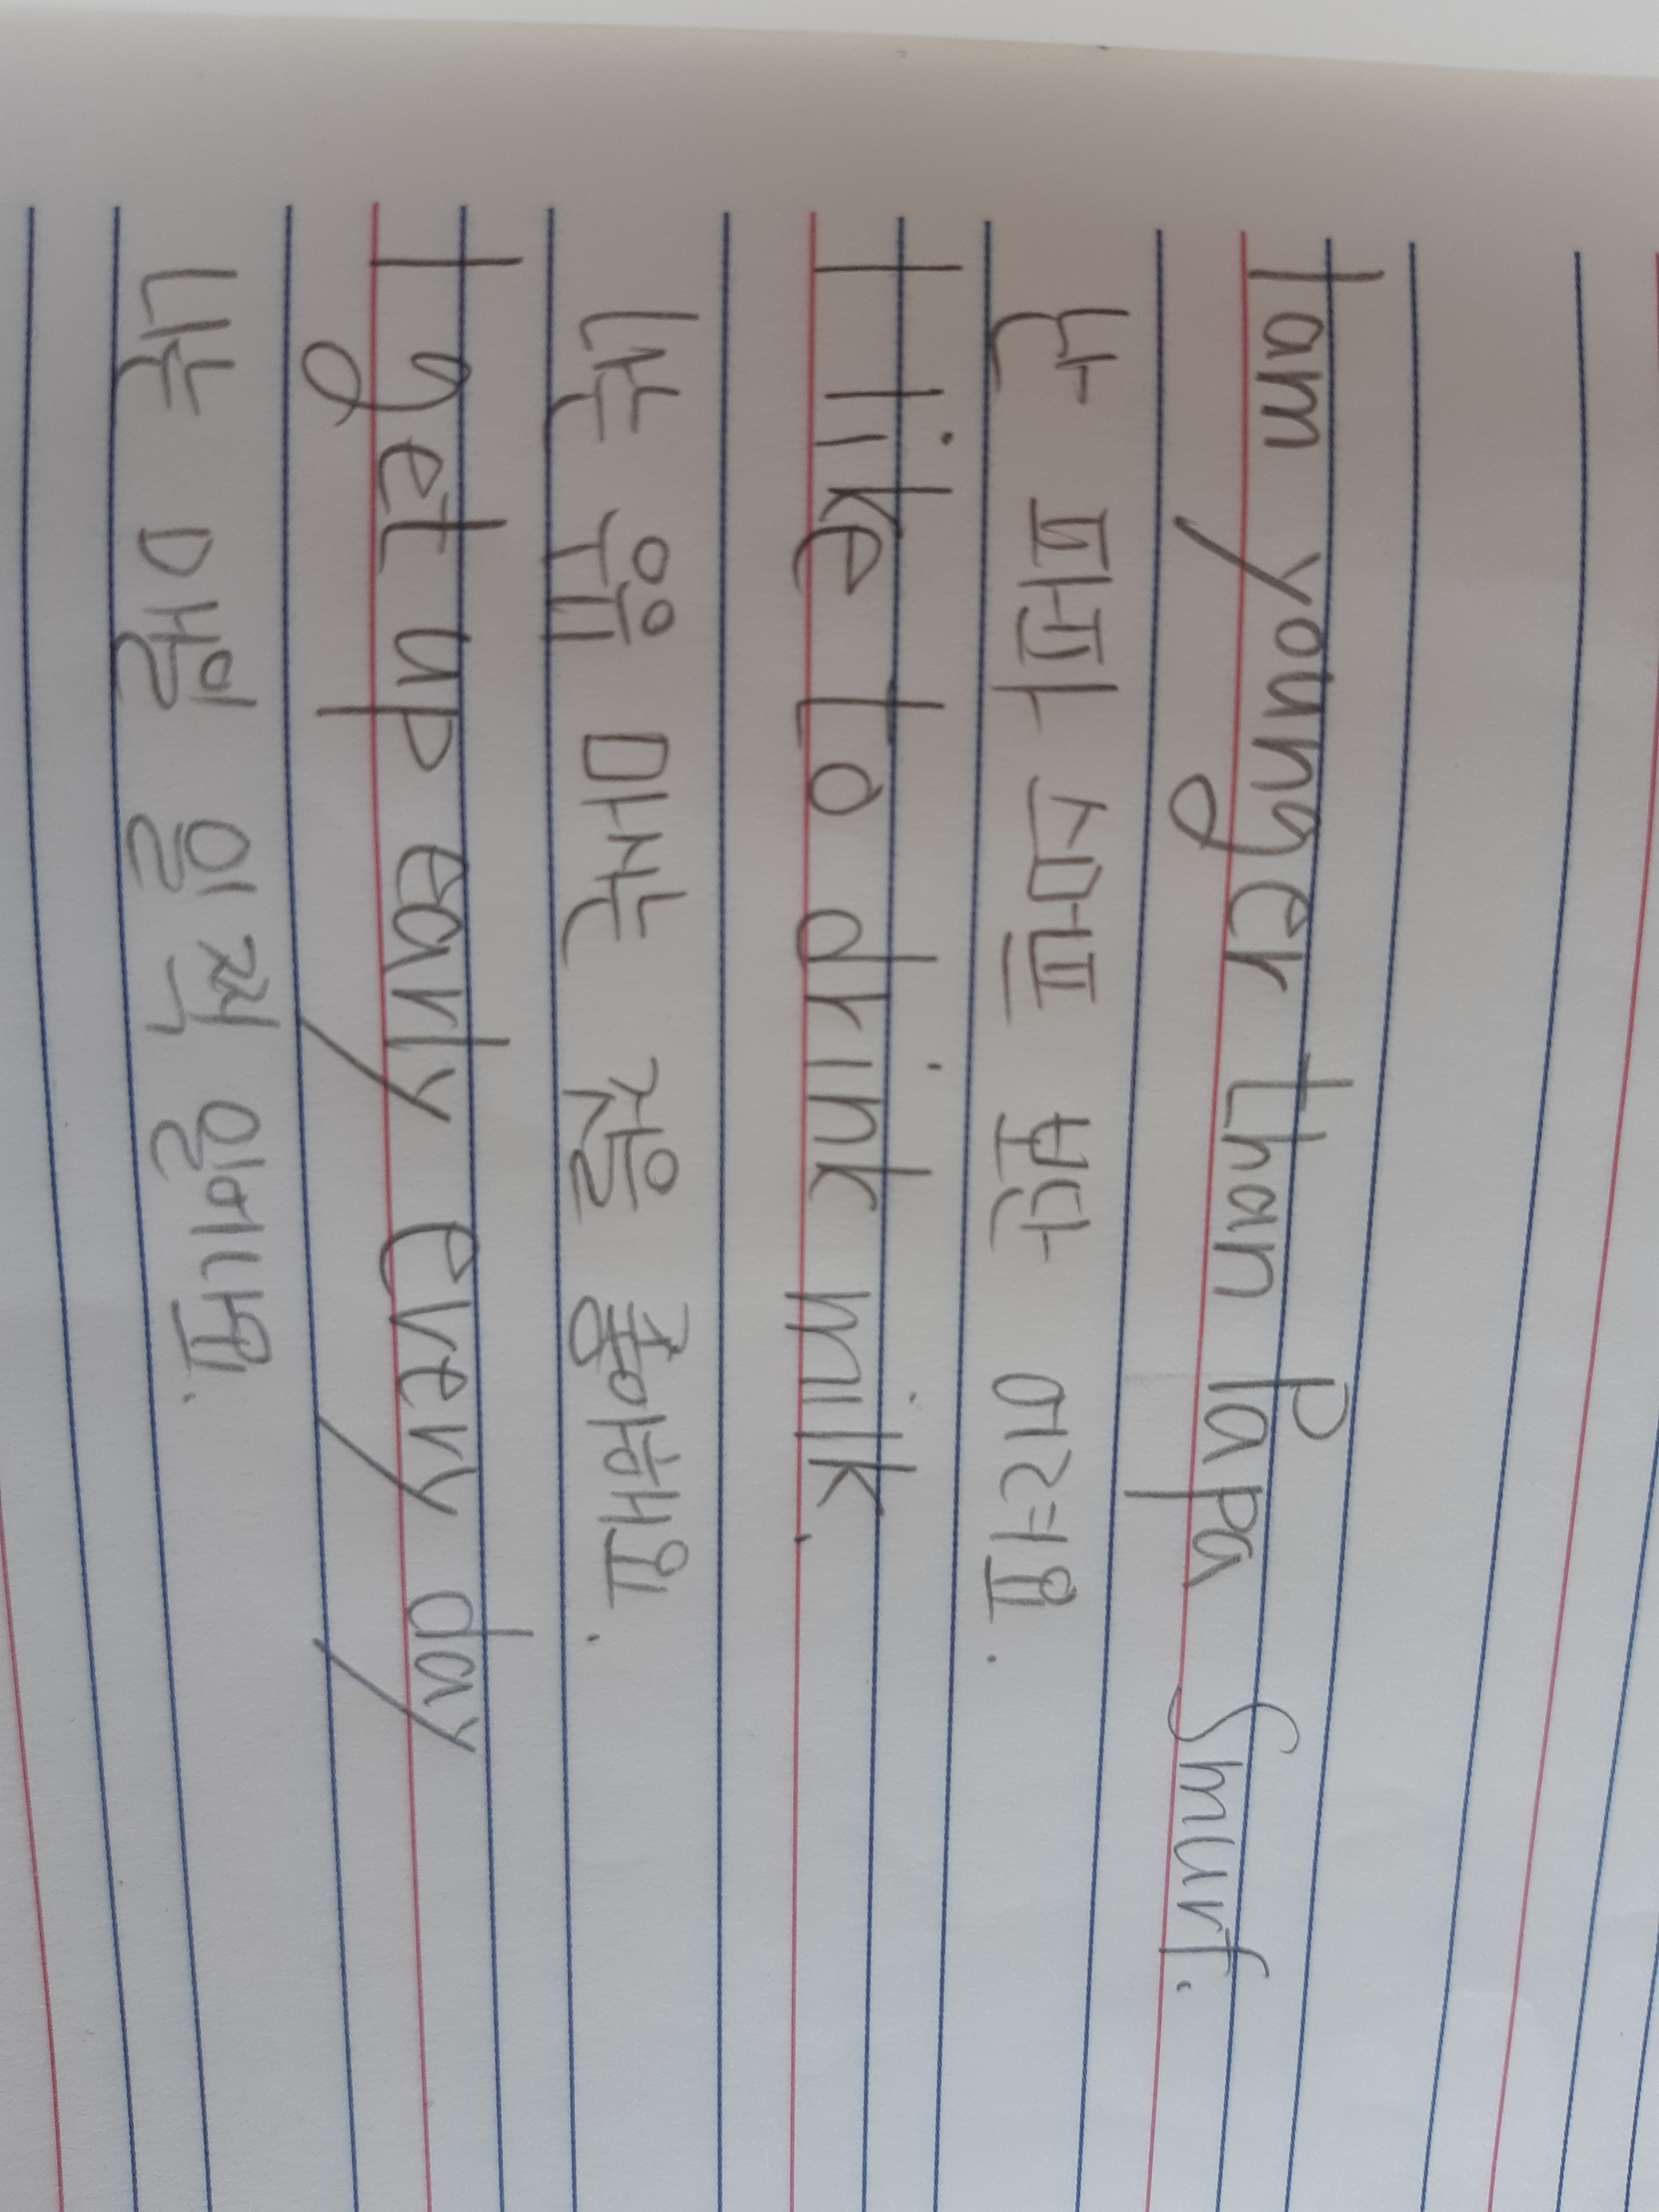 I am younger than Papa Smurf.
난 파파 스머프 보단 어려요.
I like to drink milk.
나는 우유 마시는 것을 좋아해요.
I get up early every day
나는 매일 일찍 일어나요.